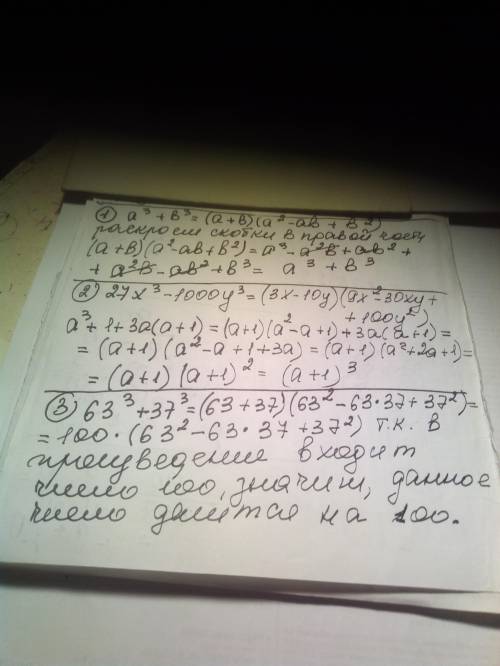 ① a³ + b³ = (a+b)(a² - ab + b²)
раскроем скобки в правой части
(a+b)(a²-ab+b²) = a³ - a²b + ab² +
+ a²b - ab² + b³ = a³ + b³
② 27x³ - 1000y³ = (3x - 10y)(9x² - 30xy +
+ 100y²)
a³ + 1 + 3a(a+1) = (a+1)(a² - a + 1) + 3a(a+1) =
= (a+1)(a² - a + 1 + 3a) = (a+1)(a² + 2a + 1) =
= (a+1)(a+1)² = (a+1)³
③ 63³ + 37³ = (63 + 37)(63² - 63·37 + 37²) =
= 100·(63² - 63·37 + 37²) т.к. в
произведении входит
число 100, значит, данное
число делится на 100.